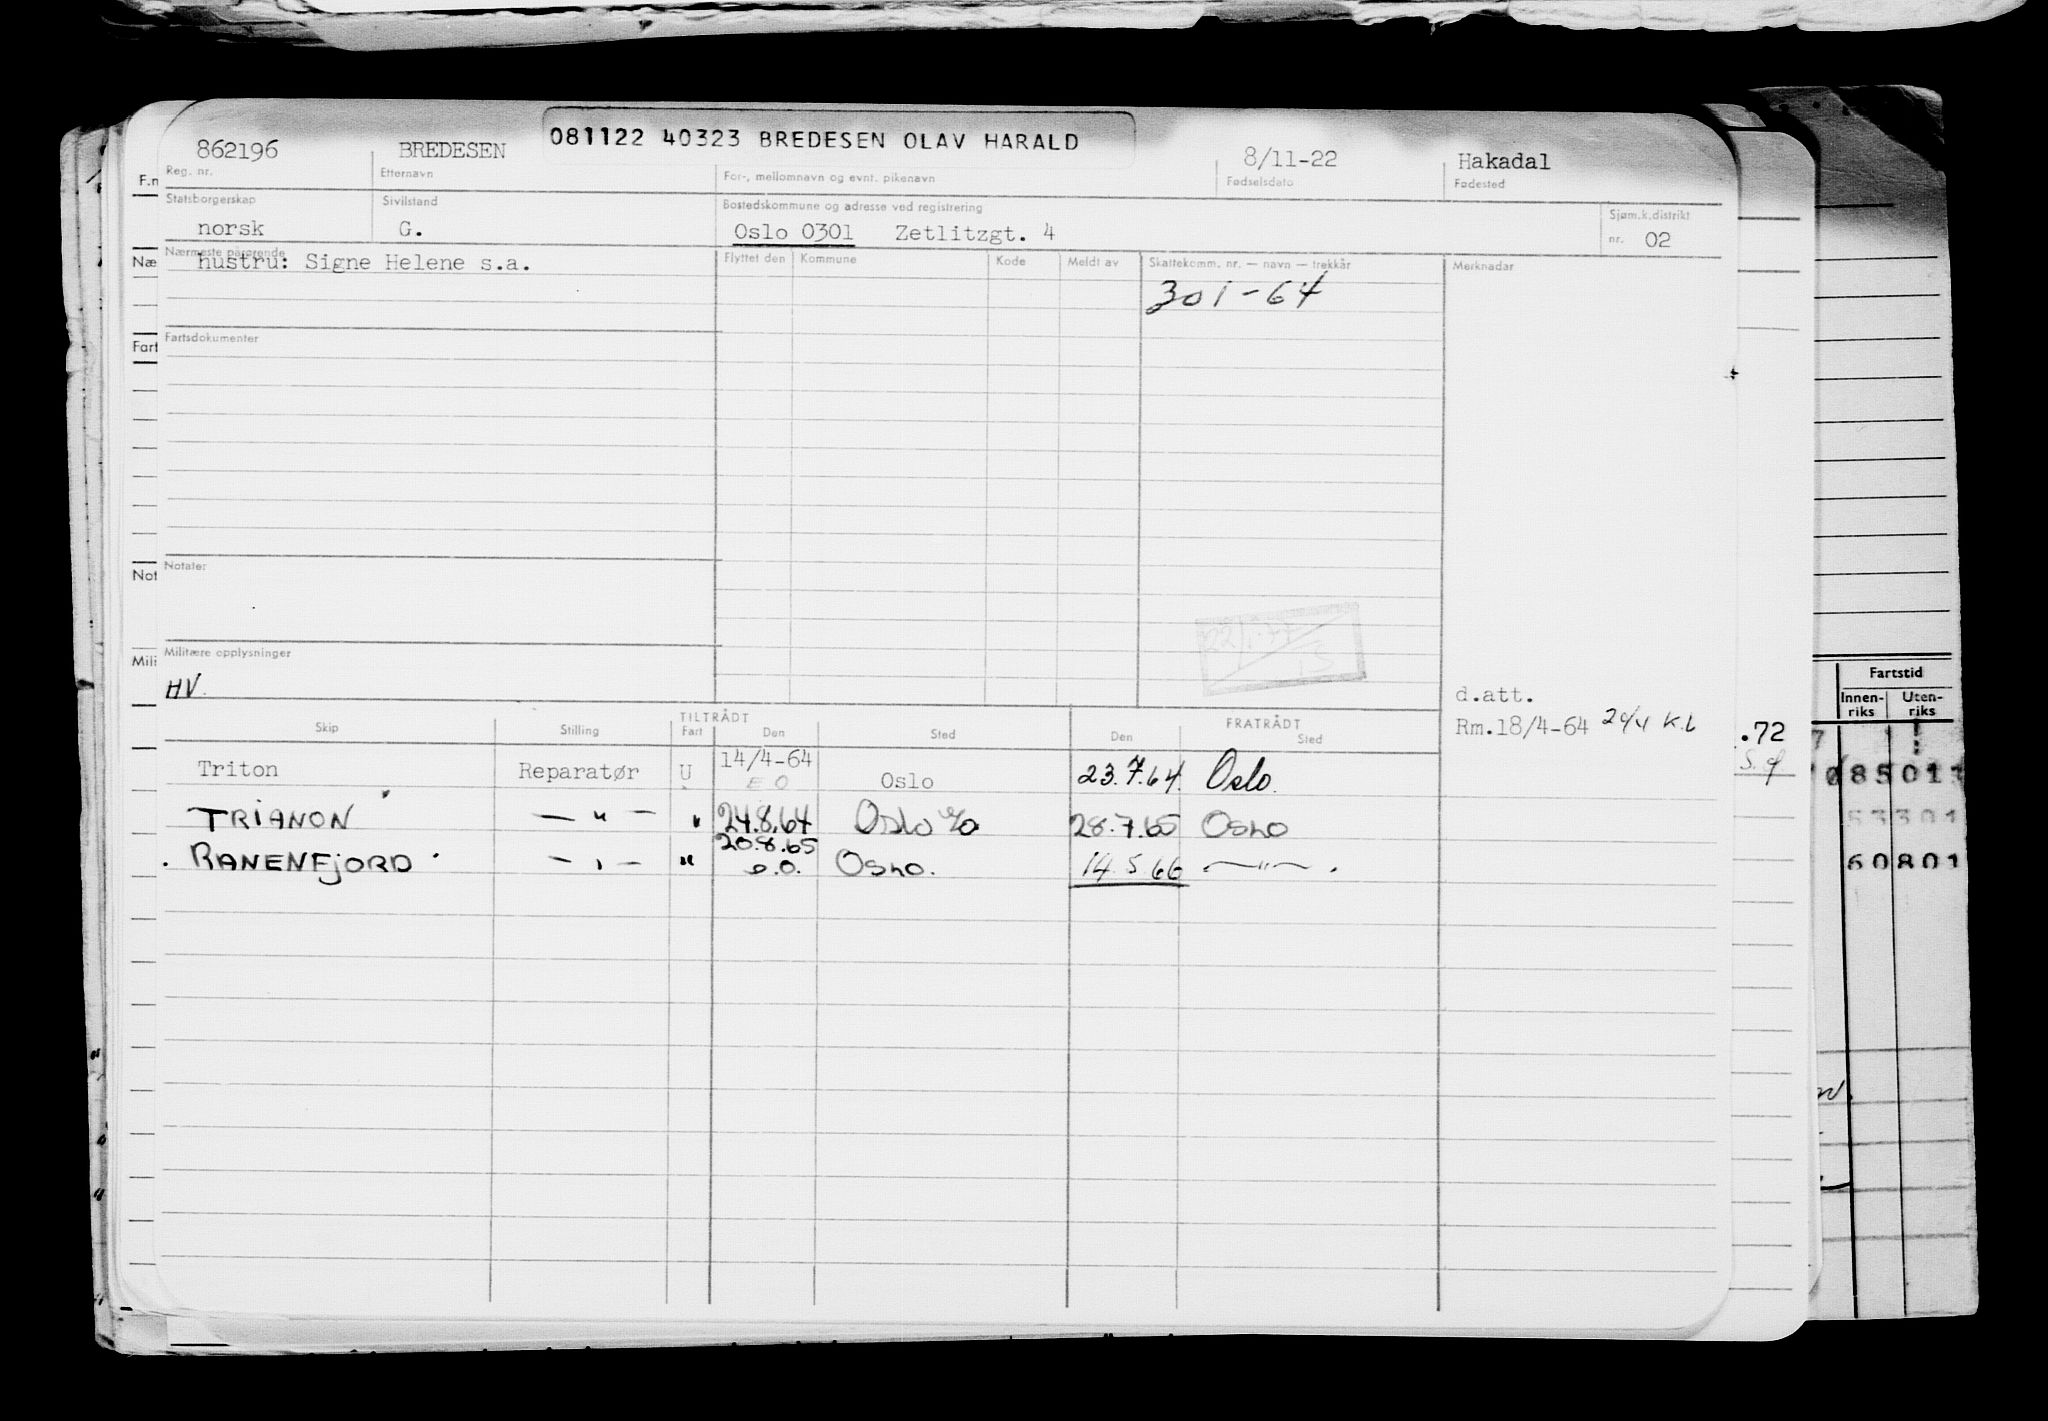 862196 BREDESEN 081122 40323 BREDESEN OLAV HARALD 8/11-22 Hakadal
Reg. nr. Etternavn For-, mellomnavn og evnt. pikenavn Fødselsdato Fødested
F.n
Statsborgerskap Sivilstand Bostedskommune og adresse ved registrering Sjøm.k.distrikt
norsk G. Oslo 0301 Zetlitzgt. 4 nr. 02
Næ Nærmeste pårørende Flyttet den Kommune Kode Meldt av Skattekomm. nr. — navn — trekkår Merknader
hustru: Signe Helene s.a.
301-64
Fart Fartsdokumenter
Not Notater
Mili Militære opplysninger
HV.
d.att.
Rm.18/4-64 K.L
Fartstid
Innen-riks Uten-riks
TILTRÅDT FRATRÅDT
Skip Stilling Fart Den Sted Den Sted
.72
Triton Reparatør U 14/4-64 Oslo 23.7.64 Oslo.
E O
85011
TRIANON — " — " 24.8.64 Oslo 28.7.65 OSLO
53301
RANENFJORD — " — " 20.8.65 OSLO. 14.5.66 — " — .
60801